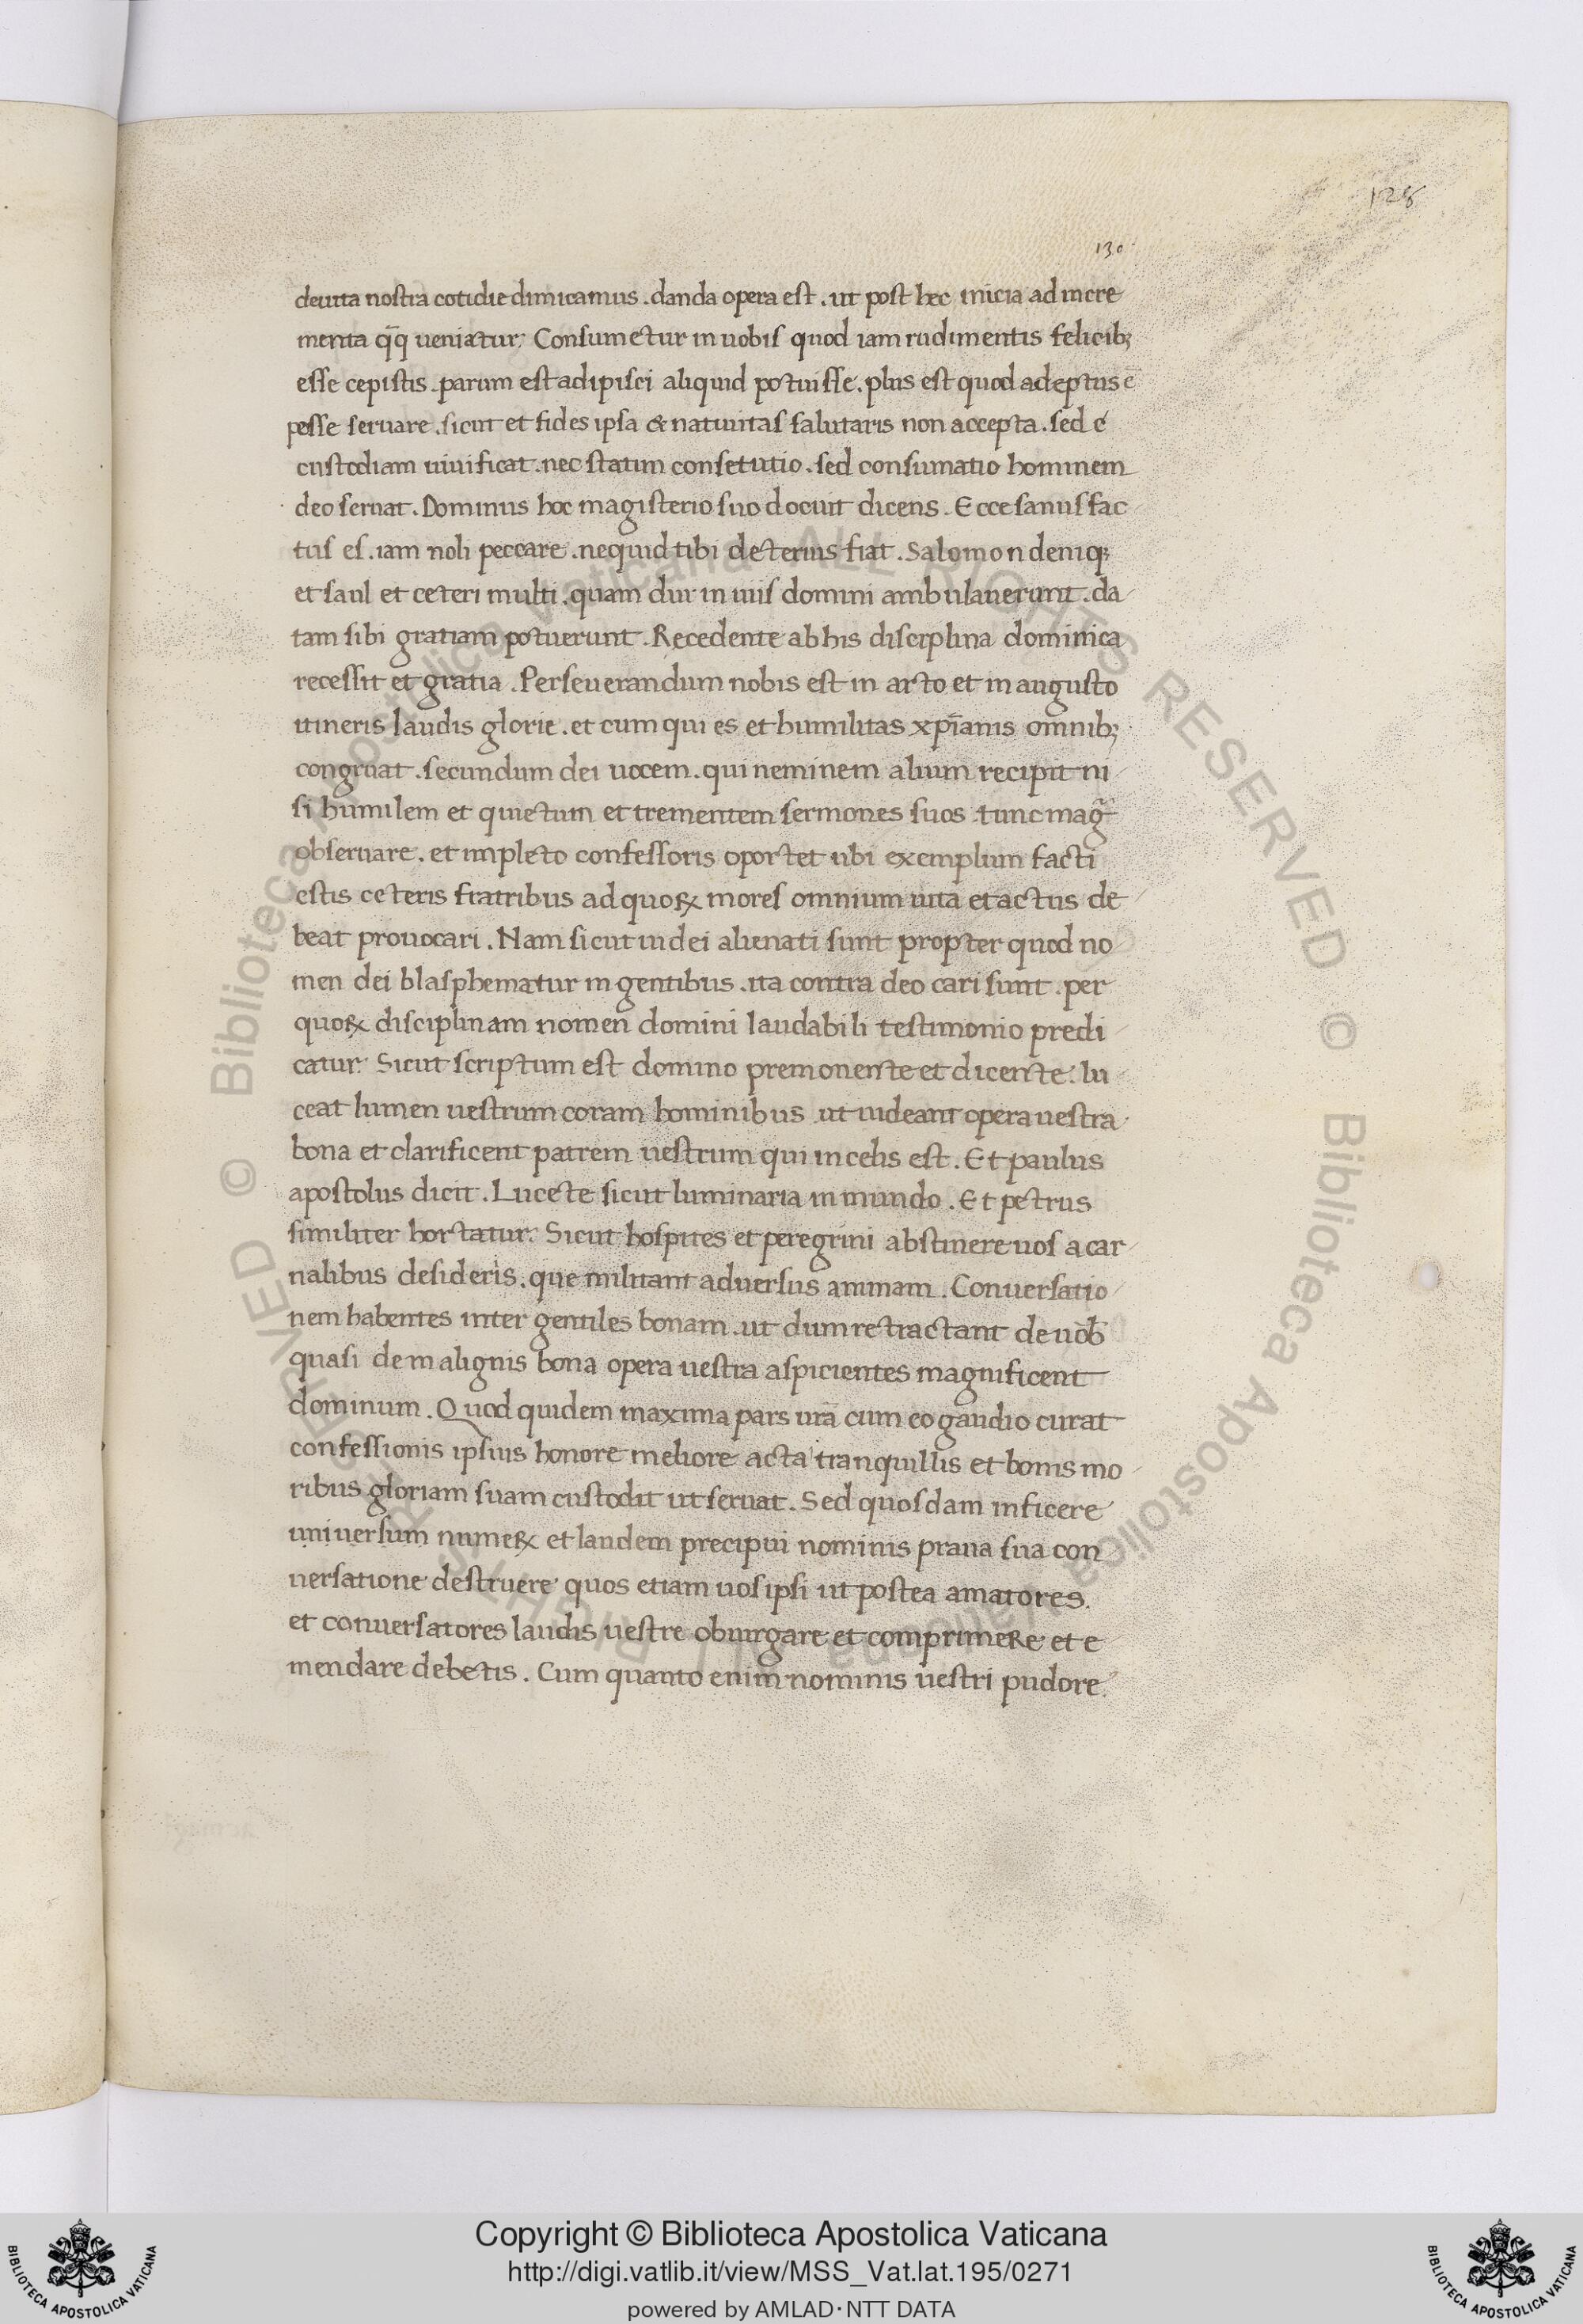 128
130
deuita nostra cotidie dimicamus . danda opera est . ut post hec inicia ad incre
menta q̄q̄ ueniatur; Consumetur in uobis quod iam rudimentis felicib;
esse cepistis . parum est adipisci aliquid potuisse . plus est quod adeptus ē
posse seruare . sicut et fides ipsa & natiuitas salutaris non accepta . sed c
custodiam uiuificat . nec statim consetutio . sed consumatio hominem
deo seruat . Dominus hoc magisterio suo docuit dicens . Ecce sanus fac
tus es . iam noli peccare . nequid tibi deterius fiat . Salomon deniq;
et saul et ceteri multi . quam diu in uiis domini ambulauerunt . da
tam sibi gratiam potuerunt . Recedente ab his disciplina dominica
recessit et gratia . Perseuerandum nobis est in arto et in augusto
itineris laudis glorie . et cum qui es et humilitas xp̄ianis omnib;
congruat . secundum dei uocem . qui neminem alium recipit ni
si humilem et quietum et trementem sermones suos . tunc mag̃
obseruare . et impleto confessoris oportet ubi exemplum facti
estis ceteris fratribus ad quoꝝ mores omnium uita et actus de
beat prouocari . Nam sicut iudei alienati sunt propter quod no
men dei blasphematur in gentibus . ita contra deo cari sunt . per
quoꝝ disciplinam nomen domini laudabili testimonio predi
catur. Sicut scriptum est domino premonente et dicente . lu
ceat lumen uestrum coram hominibus ut uideant opera uestra
bona et clarificent patrem uestrum qui in celis est . Et paulus
apostolus dicit . Lucete sicut luminaria in mundo . Et petrus
similiter hortatur. Sicut hospites et peregrini abstinere uos a car
nalibus desideris . que militant aduersus animam . Conuersatio
nem habentes inter gentiles bonam . ut dum retractant de uob̄
quasi de malignis bona opera uestra aspicientes magnificent
dominum . Quod quidem maxima pars ur̄a cum eo gaudio curat
confessionis ipsius honore meliore acta tranquillis et bonis mo
ribus gloriam suam custodit ut seruat . Sed quosdam inficere
uniuersum numeꝝ et laudem precipui nominis praua sua con
uersatione destruere quos etiam uos ipsi ut postea amatores.
et conuersatores laudis uestre obiurgare et comprimere et e
mendare debetis . Cum quanto enim nominis uestri pudore.
© Biblioteca Apostolica Vaticana ALL RIGHTS RESERVED © Biblioteca Apostolica Vaticana ALL RIGHTS RESERVED
Copyright © Biblioteca Apostolica Vaticana
http://digi.vatlib.it/view/MSS_Vat.lat.195/0271
powered by AMLAD·NTT DATA
BIBLIOTECA APOSTOLICA VATICANA
BIBLIOTECA APOSTOLICA VATICANA